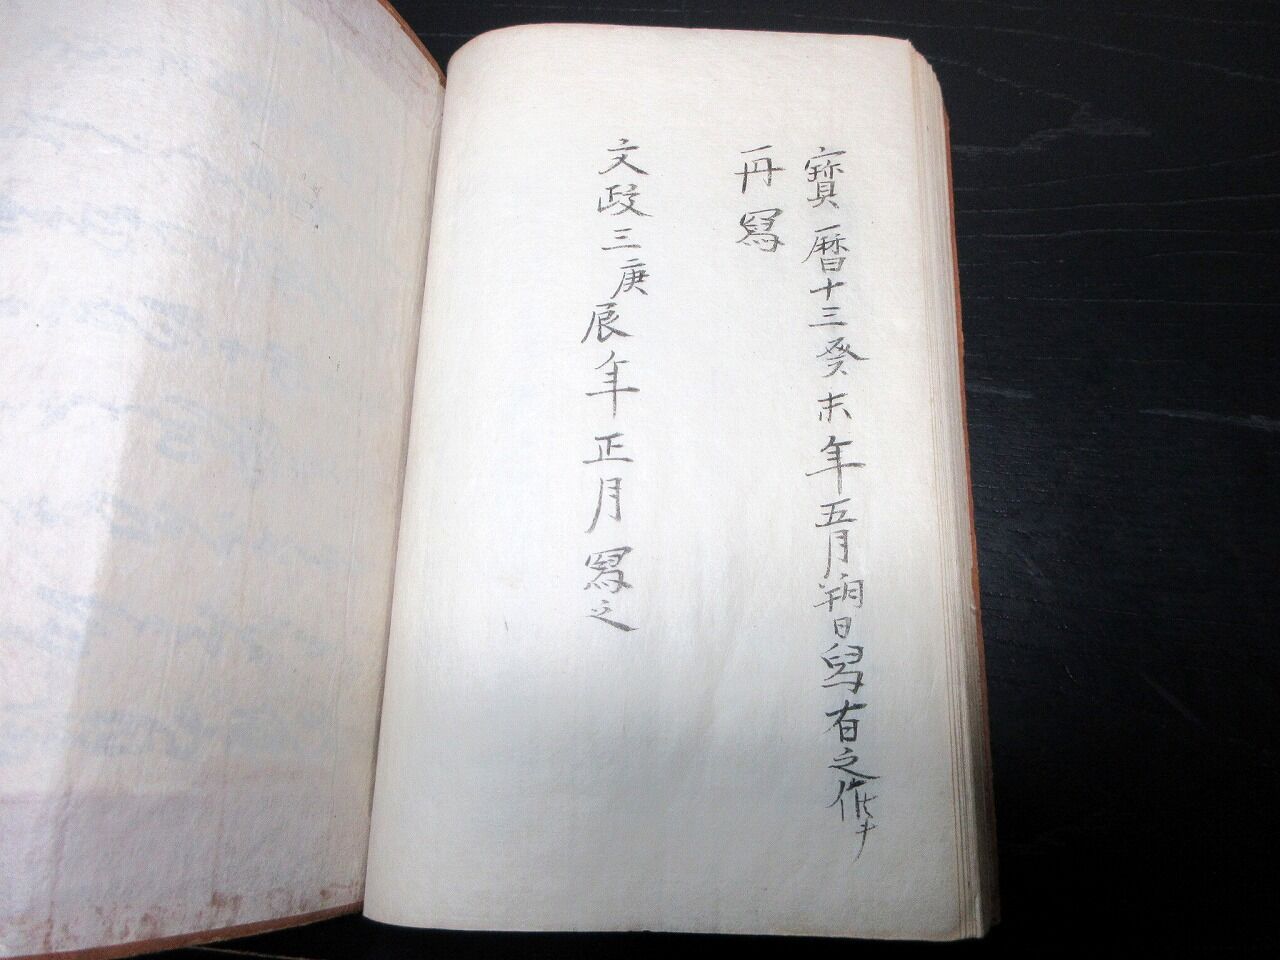 寶暦十三癸未年五月朔日写有之
再寫
文政三庚辰年正月寫之